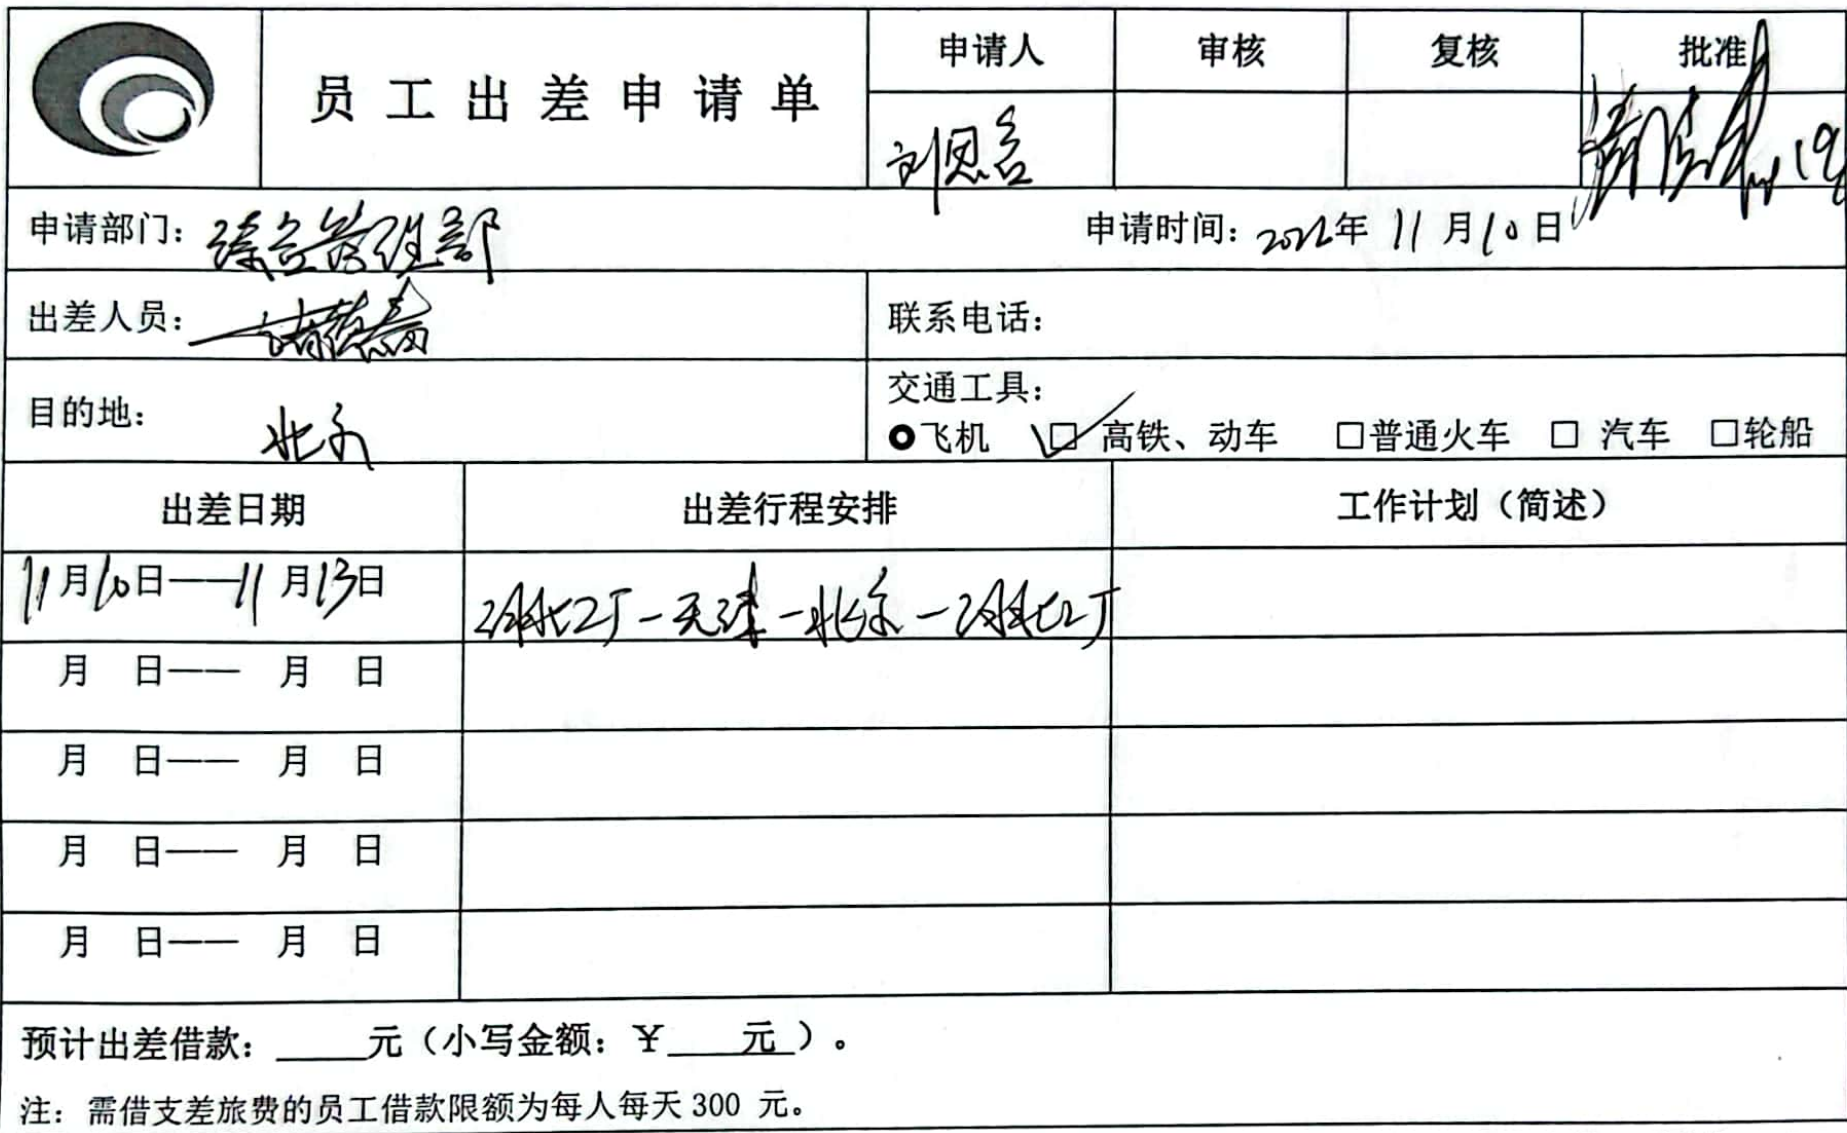 员工出差申请单
申请人 审核 复核 批准
刘思名
申请部门：综合管理部 申请时间：2022年11月10日
出差人员： 联系电话：
目的地：北京 交通工具：
飞机 □高铁、动车 □普通火车 □ 汽车 □轮船
出差日期 出差行程安排 工作计划（简述）
11月10日——11月13日 湖北工厂-天津-北京-湖北工厂
月 日—— 月 日
月 日—— 月 日
月 日—— 月 日
月 日—— 月 日
预计出差借款：_____元（小写金额：￥____元_）。
注：需借支差旅费的员工借款限额为每人每天300 元。